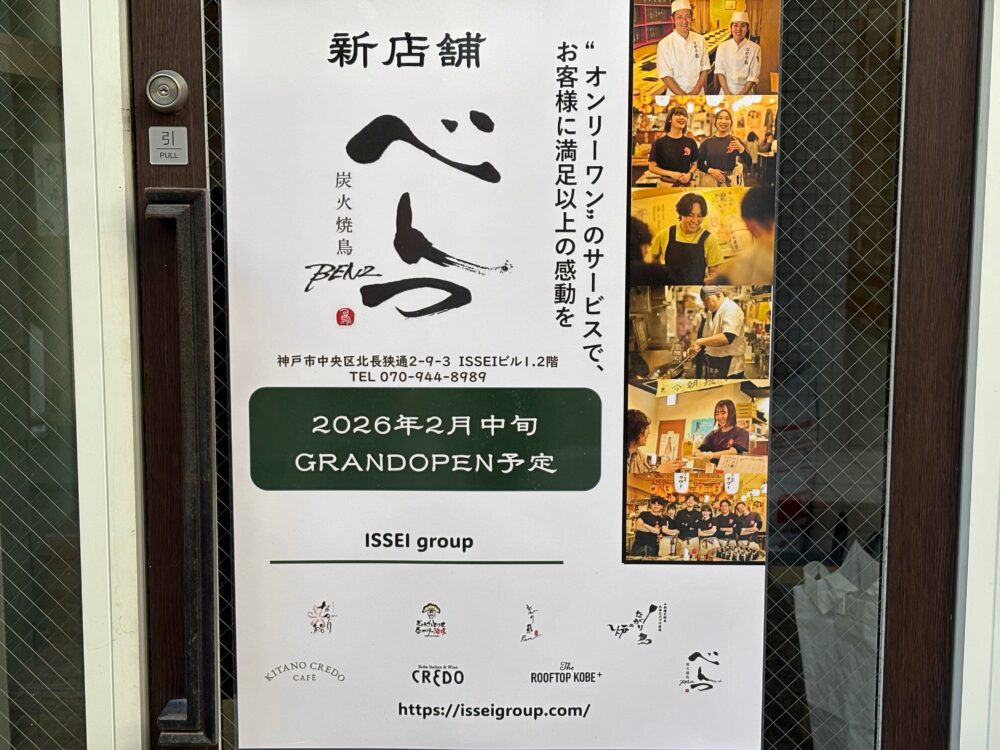 引
PULL
新店舗
べんつ
炭火焼鳥
BENZ
“オンリーワン”のサービスで、
お客様に満足以上の感動を
神戸市中央区北長狭通2-9-3 ISSEIビル1.2階
TEL 070-944-8989
2026年2月中旬
GRANDOPEN予定
ISSEI group
KITANO CREDO
CAFÉ
Soba Italian & Wine
CREDO
The
ROOFTOP KOBE+
べんつ
炭火焼鳥
BENZ
https://isseigroup.com/